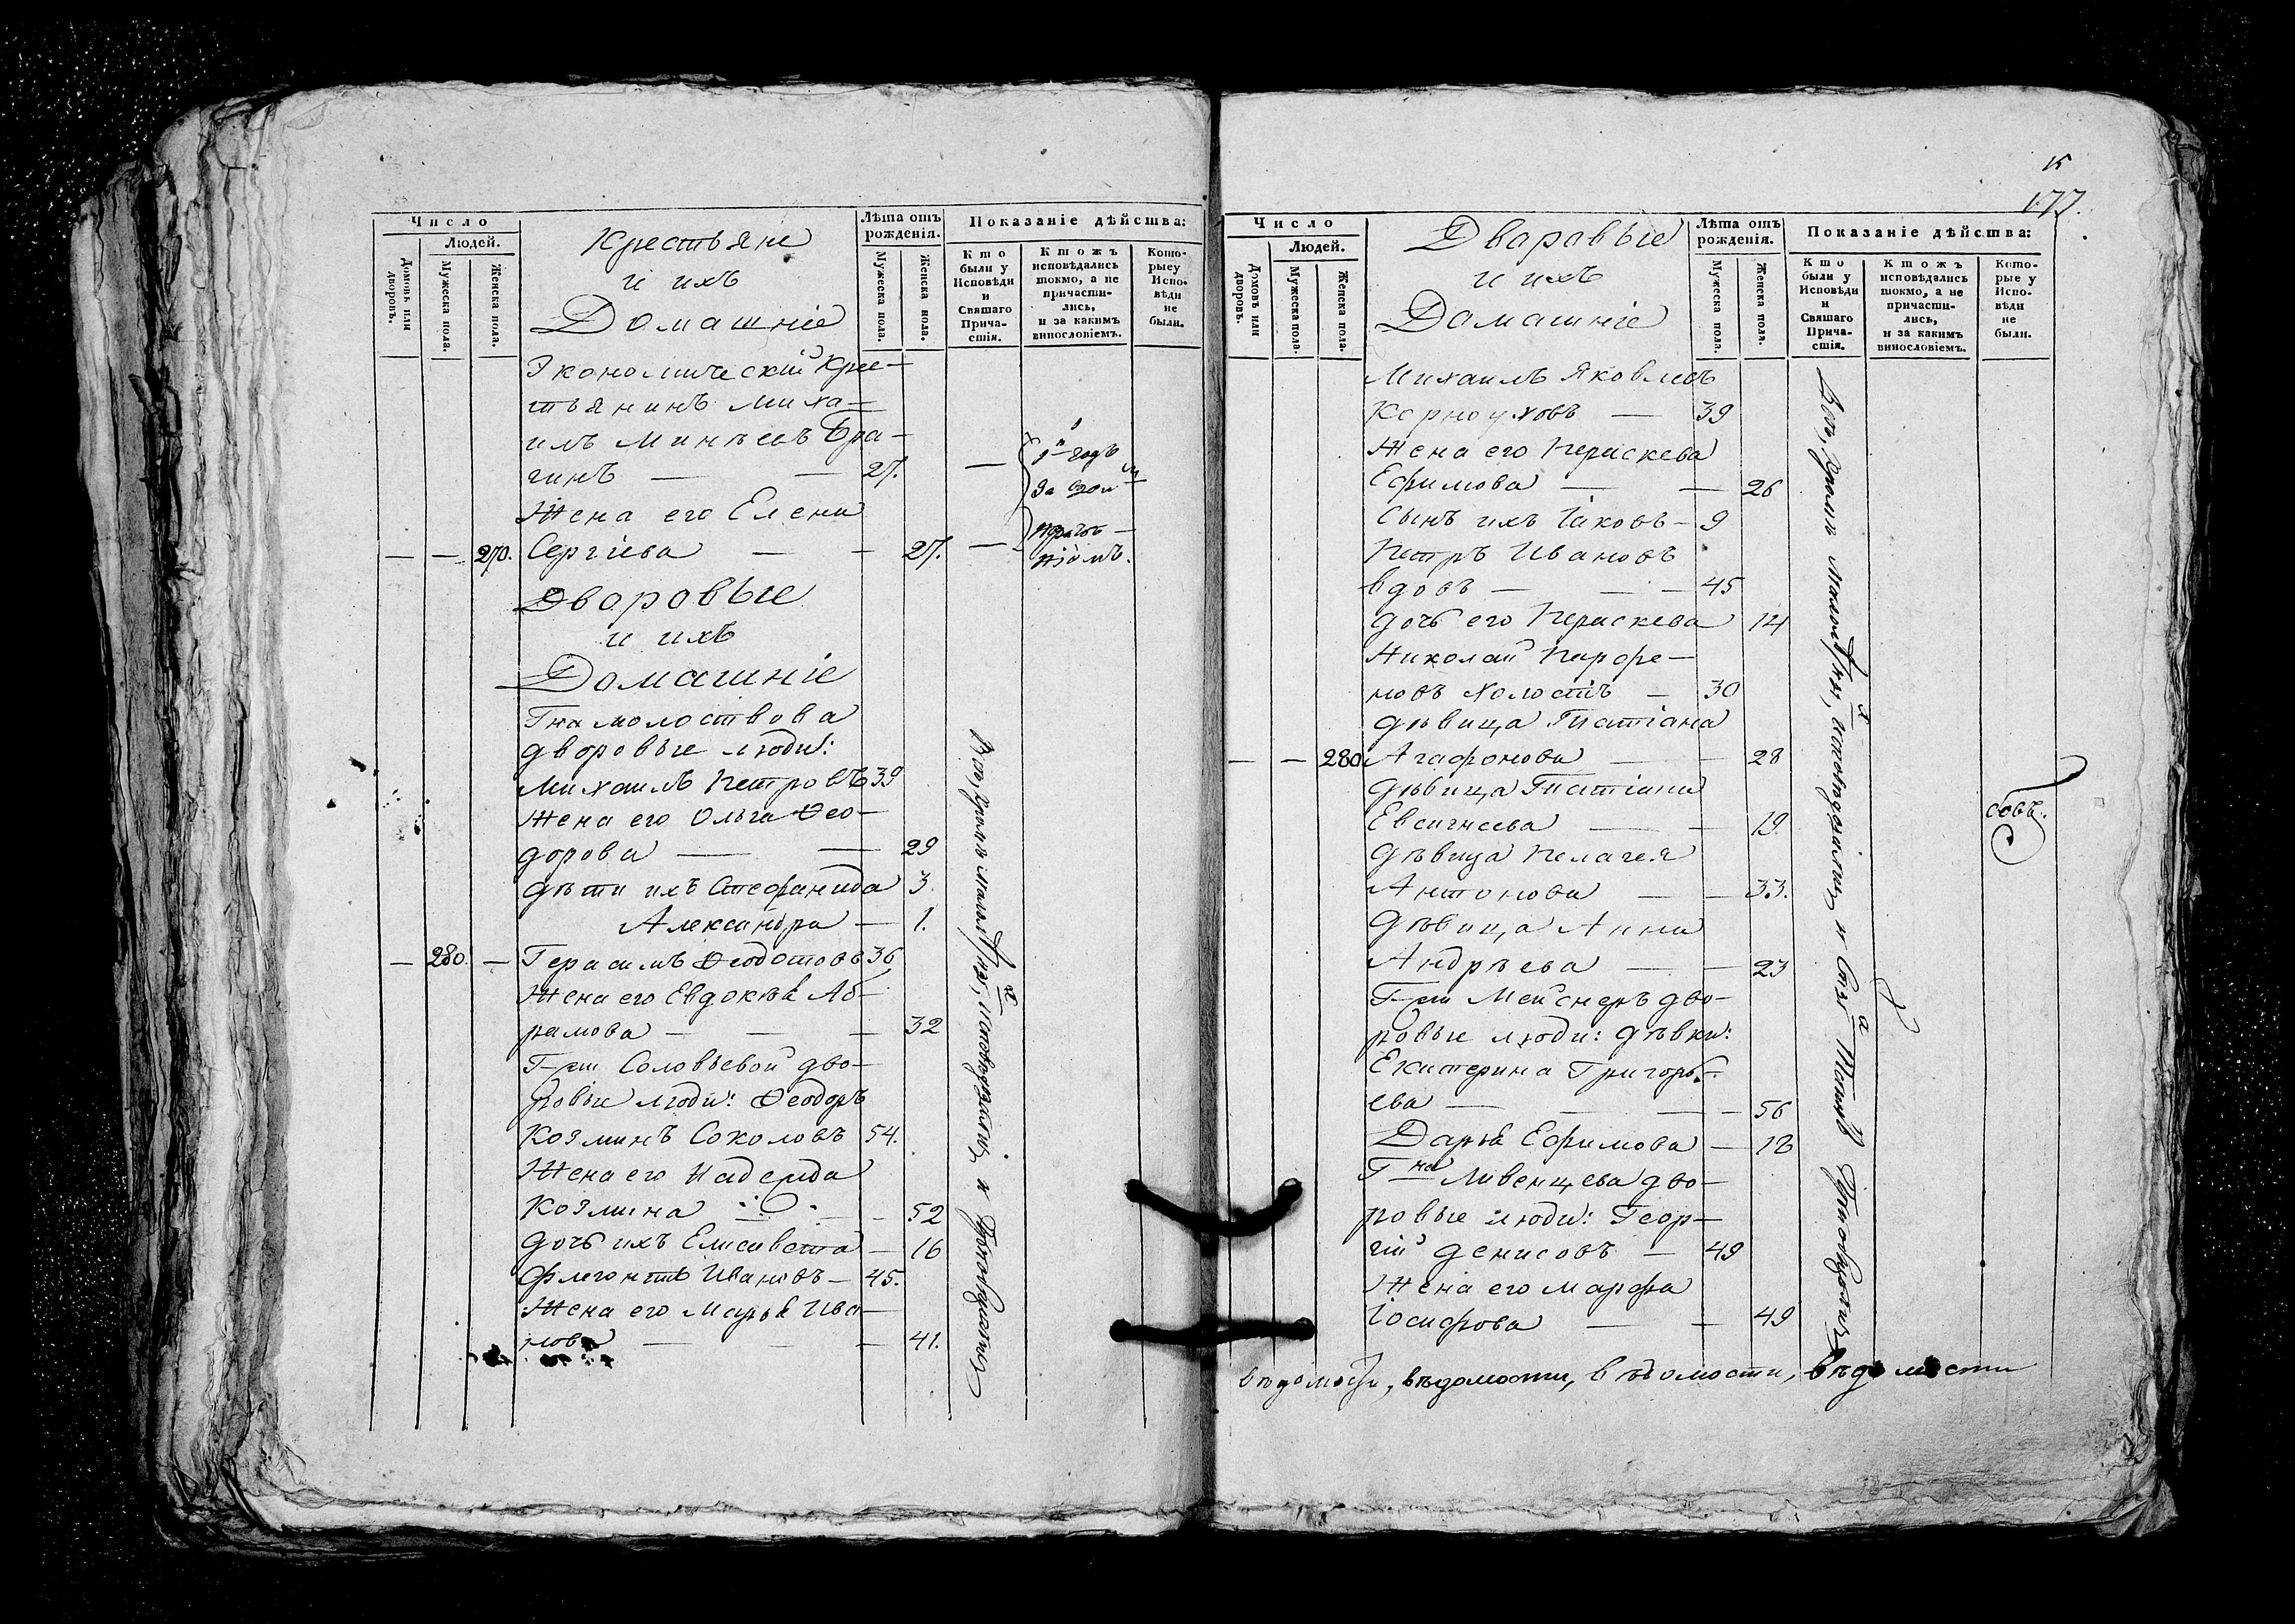 Число
Людей.
Домовъ или дворовъ.
Мужеска пола.
Женска пола.
Крестьяне
и ихъ
Домашніе
Лѣта отъ рожденія.
Мужеска пола.
Женска пола.
Показаніе дѣйства:
Кто были у Исповѣди и Святаго Причастія.
Ктожъ исповѣдались токмо, а не причастились, и за какимъ винословіемъ.
Которые у Исповѣди не были.
Экономическій Крес-
тьянинъ Миха-
илъ Минѣевъ Бра-
гинъ — — 27.
Жена его Елена
— — 270. Сергіева — — 27. —
Дворовые
и ихъ
Домашніе
Гна Молоствова
дворовые люди:
Михаилъ Петровъ 39
Жена его Ольга Ѳео-
дорова — — 29
дѣти ихъ Стефанида 3.
Александра — 1.
— 280. — Герасимъ Ѳеодотовъ 36
Жена его Евдокѣя Аб-
рамова — — — 32
Г-жи Соловьевой дво-
ровые люди: Ѳеодоръ
Козминъ Соколовъ 54.
Жена его Надежда
Козмина — — 52
дочь ихъ Елисавета — 16
Флегонтъ Ивановъ — 45.
Жена его Марья Ива-
нова — — — 41.
15
177.
Число
Людей.
Домовъ или дворовъ.
Мужеска пола.
Женска пола.
Дваровые
и ихъ
Домашніе
Лѣта отъ рожденія.
Мужеска пола.
Женска пола.
Показаніе дѣйства:
Кто были у Исповѣди и Святаго Причастія.
Ктожъ исповѣдались токмо, а не причастились, и за какимъ винословіемъ.
Которые у Исповѣди не были.
Михаилъ Яковлевъ
Карноуховъ — 39
Жена его Параскева
Ефимова — — 26
сынъ ихъ Іаковъ — 9
Петръ Ивановъ
вдовъ — — — 45
дочь его Параскева 14
Николай Парфе-
новъ холостъ — 30
дѣвица Татіана
— — 280 Агафонова — — 28
дѣвица Татіана
Евсигнеева — — 19.
дѣвица Пелагея
Антонова — — 33.
дѣвица Анна
Андрѣева — — 23
Г-жи Мейснеръ дво-
ровые люди: дѣвки:
Екатерина Григорь-
ева — — — 56
Дарья Ефимова — 18
Гна Ливенцева дво-
ровые люди: Геор-
гій Денисовъ — 49
Жена его Марфа
Іосифова — — 49
вѣдомости, вѣдомости, вѣдомости, вѣдомости